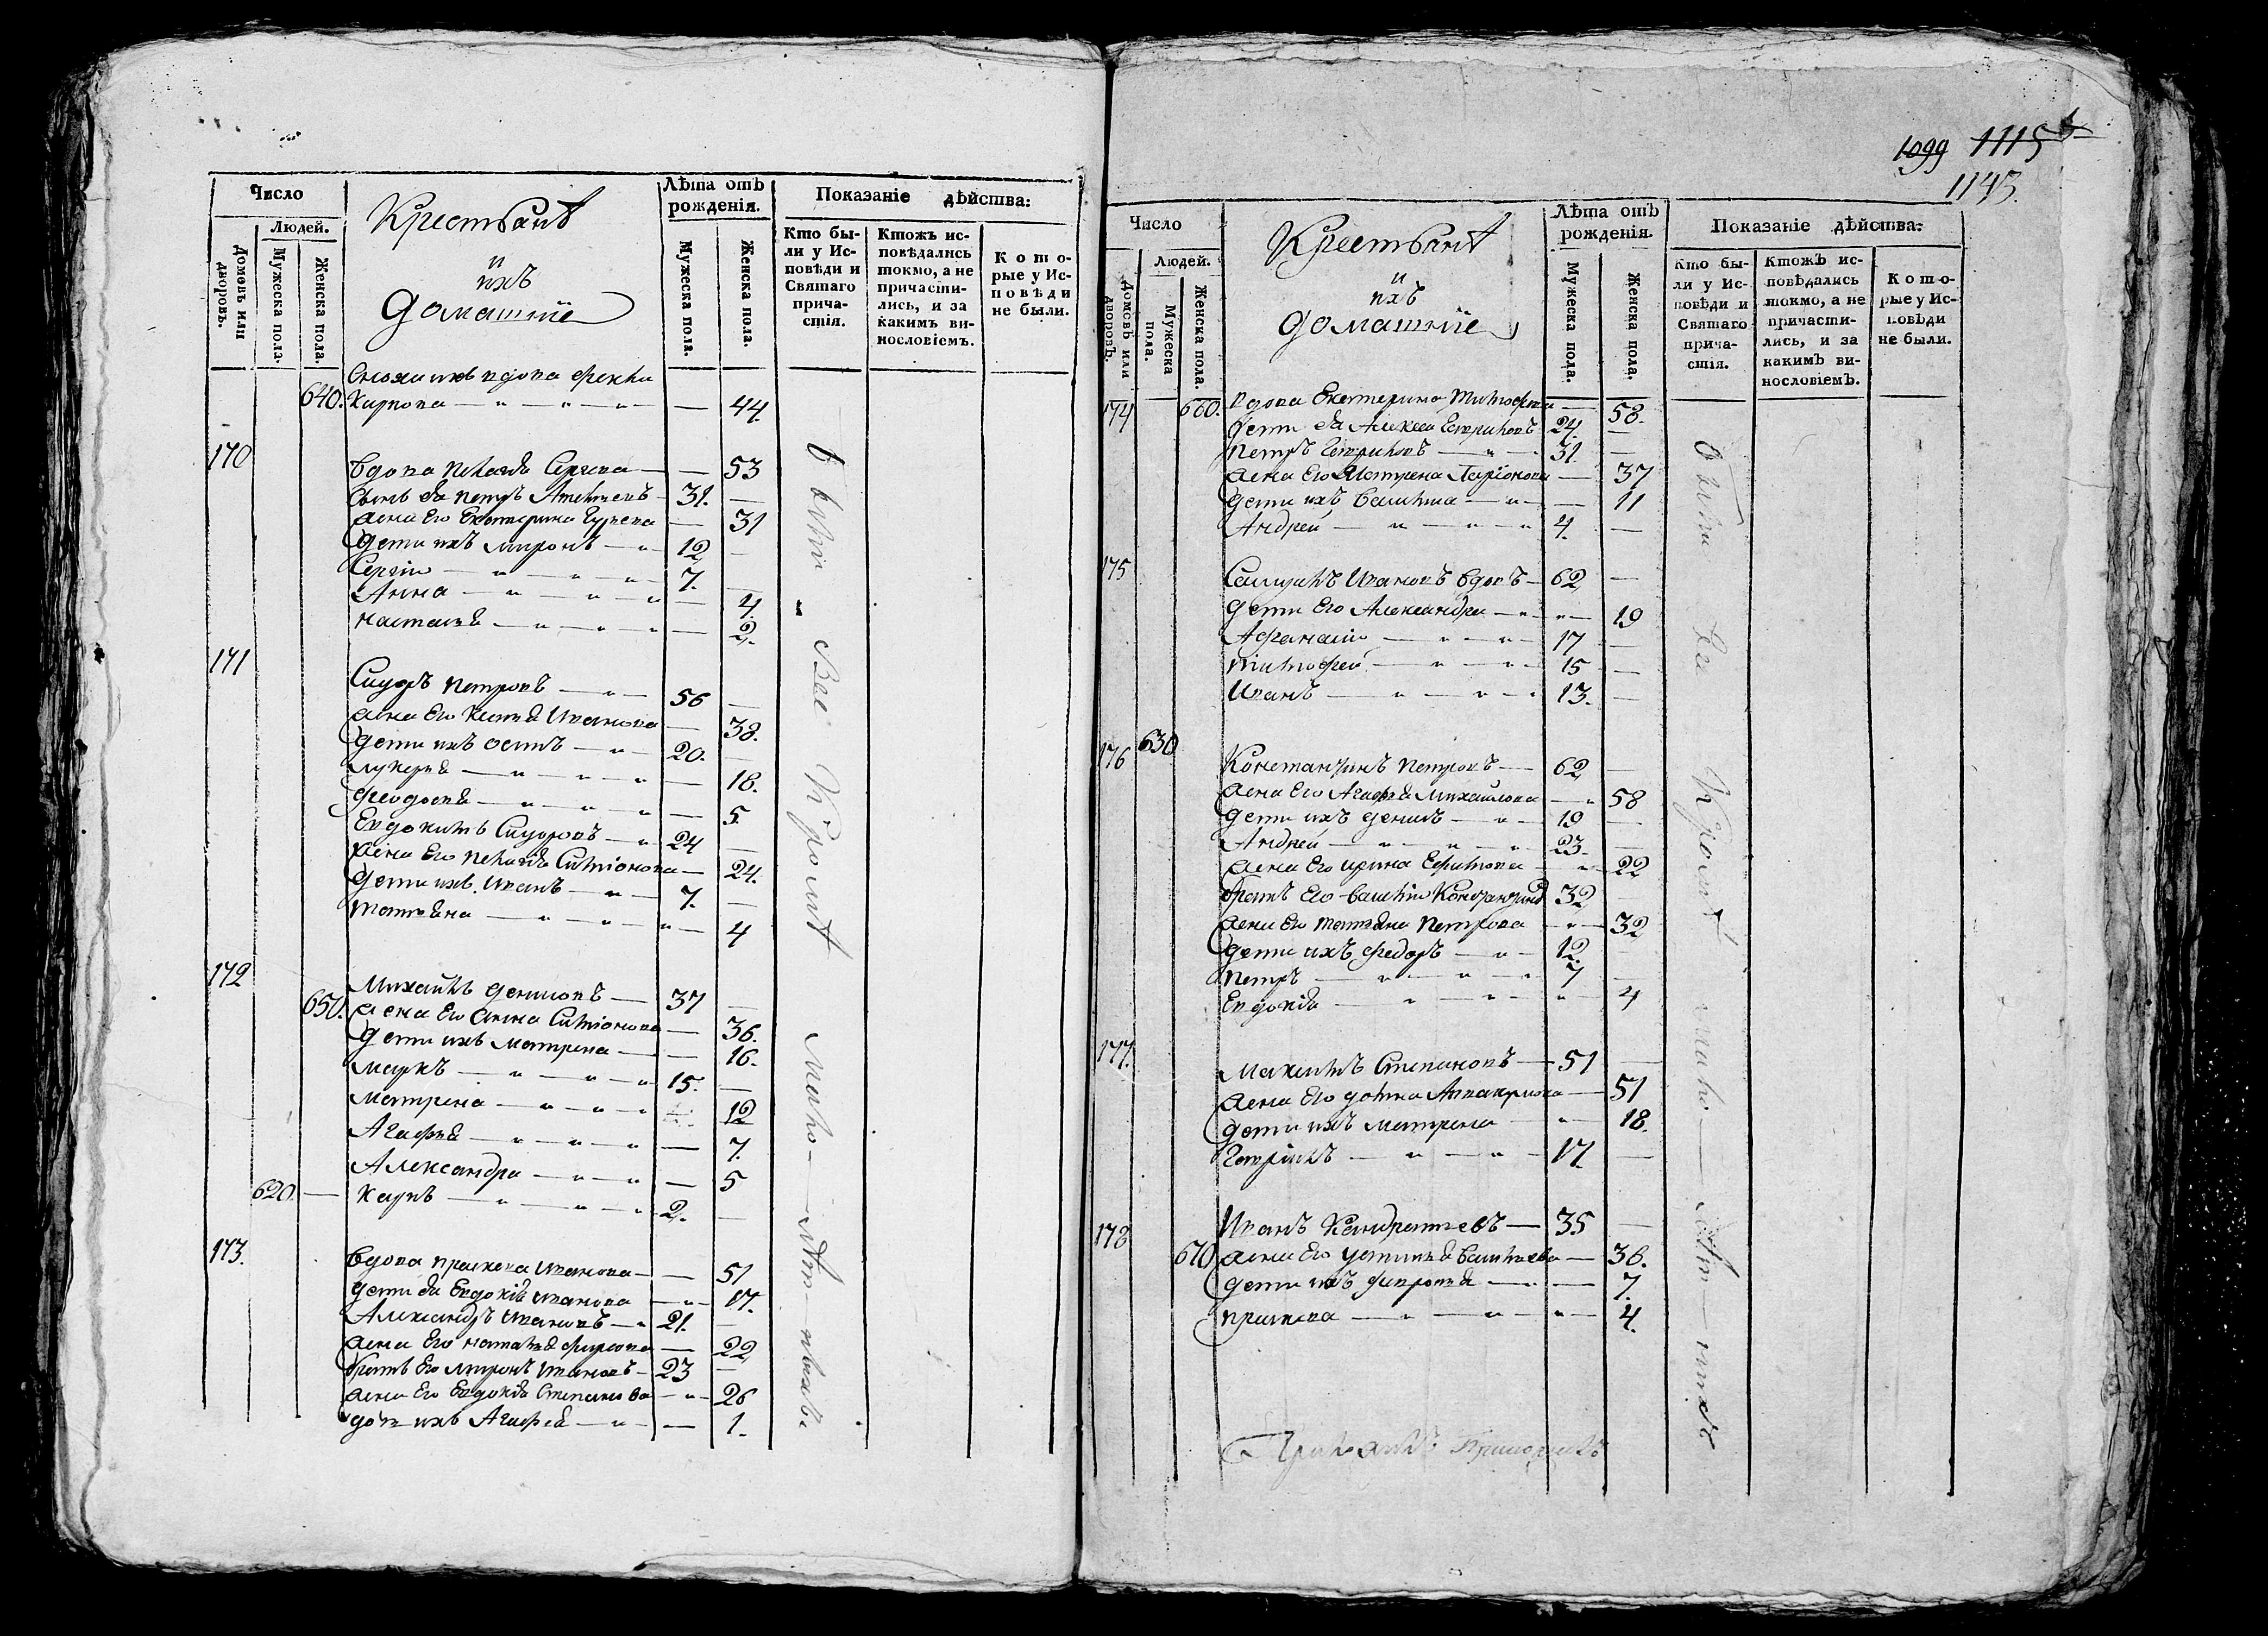 Число
Людей.
Домовъ или дворовъ.
Мужеска пола.
Женска пола.
Крестьянѣ
и
ихъ
домашніе
Лѣта отъ рожденія.
Мужеска пола.
Женска пола.
Показаніе дѣйства:
Кто бы-
ли у Ис-
повѣди и
Святаго
прича-
стія.
Ктожъ ис-
повѣдались
токмо, а не
причасти-
лись, и за
какимъ ви-
нословіемъ.
Кото-
рые у Ис-
повѣди
не были.
вдова Фекла
640. Карпова — 44.
170 Вдова Пелагѣя Сергѣева — 53
Сынъ ея Петръ — 31.
жена его Екатерина Гурьева — 31
Дети ихъ Миронъ — 12
Сергій — 7.
Анна — 4.
Настасья — 2.
171 Сидоръ Петровъ — 56
жена его Ивановна — 38.
Дети ихъ Осипъ — 20.
Лукерья — 18.
Феодосья — 5
Евдокимъ Сидоровъ — 24
жена его Пелагѣя Симіонова — 24.
Дети ихъ Иванъ — 7.
Татьяна — 4
172 Михайлъ Денисовъ — 37
650. жена его Анна Симіонова — 36.
Дети ихъ Матрена — 16.
Маркъ — 15.
Матрена — 12
Агафья — 7.
Александра — 5
620. — Карпъ — 2.
173. Вдова Прасковья Иванова — 51
Дети ея Евдокія Иванова — 17.
Александръ Ивановъ — 21.
жена его Наталья Фирсова — 22
братъ его Миронъ Ивановъ — 23
жена его Евдокія Степанова — 26
дочь ихъ Агафья — 1.
были Все Кромѣ мало-лѣтнихъ
1099 1115
1143.
Число
Людей.
Домовъ или дворовъ.
Мужеска пола.
Женска пола.
Крестьянѣ
и
ихъ
домашніе
Лѣта отъ рожденія.
Мужеска пола.
Женска пола.
Показаніе дѣйства:
Кто бы-
ли у Ис-
повѣди и
Святаго
прича-
стія.
Ктожъ ис-
повѣдались
токмо, а не
причасти-
лись, и за
какимъ ви-
нословіемъ.
Кото-
рые у Ис-
повѣди
не были.
174 660. Вдова Екатерина Тимофеева — 58.
Дети ея Алексей — 24.
Петръ — 31.
жена его Матрена Ларіонова — 37
Дети ихъ — 11
Андрей — 4.
175 Ивановъ вдовъ — 62
Дети его Александра — 19
Афанасій — 17
Тимофей — 15
Иванъ — 13.
176 630. Константинъ Петровъ — 62
жена его Агафья Михайлова — 58
Дети ихъ Денисъ — 19
Андрей — 23.
жена его Ирина Ефимова — 22
братъ его Василій — 32
жена его Татьяна Петрова — 32
Дети ихъ Федоръ — 12.
Петръ — 7
Евдокія — 4
177. Максимъ Степановъ — 51
жена его Домна — 51
Дети ихъ Матрена — 18.
— 17.
178 Иванъ Кандратьевъ — 35
670 жена его Устинья Васильева — 36.
Дети ихъ — 7.
Прасковья — 4.
были Все Кромѣ мало-лѣтнихъ